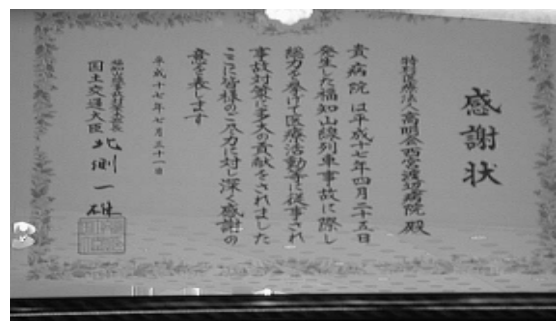 感謝状
特定医療法人高明会西宮渡辺病院 殿
貴病院は平成十七年四月二十五日
発生した福知山線列車事故に際し
総力を挙げて医療活動等に従事され
事故対策に多大の貢献をされました
ここに皆様のご尽力に対し深く感謝の
意を表します
平成十七年七月三十一日
福知山線事故対策本部長
国土交通大臣 北側一雄